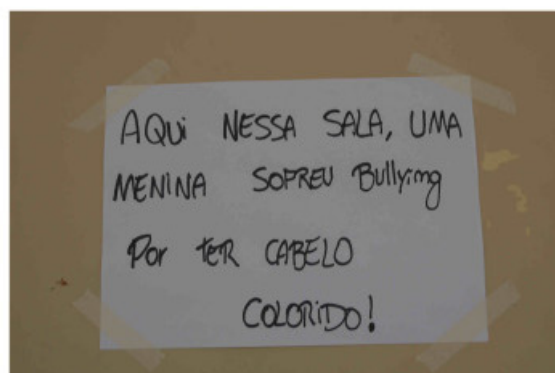 AQUi NESSA SALA, UMA
MENINA SOFREU Bullying
Por tER CABELO
COLORiDO!